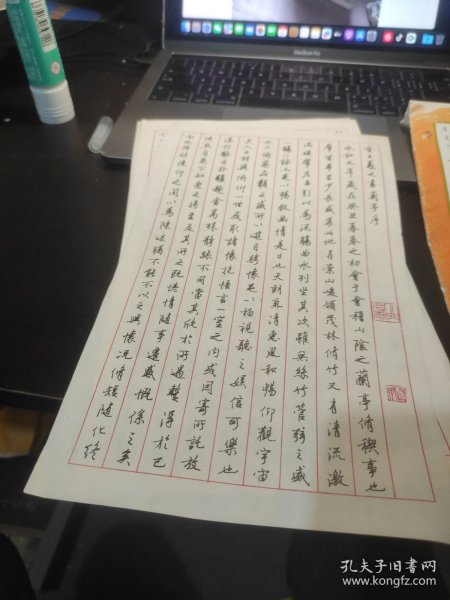 晉王羲之書蘭亭序
永和九年歲在癸丑暮春之初會于會稽山陰之蘭亭脩稧事也
群賢畢至少長咸集此地有崇山峻領茂林脩竹又有清流激
湍暎帶左右引以為流觴曲水列坐其次雖無絲竹管弦之盛
一觴一詠亦足以暢敘幽情是日也天朗氣清惠風和暢仰觀宇宙
之大俯察品類之盛所以遊目騁懷足以極視聽之娛信可樂也
夫人之相與俯仰一世或取諸懷抱悟言一室之內或因寄所託放
浪形骸之外雖趣舍萬殊靜躁不同當其欣於所遇暫得於己
快然自足不知老之將至及其所之既惓情隨事遷感慨係之矣
向之所欣俛仰之間以為陳迹猶不能不以之興懷況脩短隨化終
MacBook Pro
孔夫子旧书网
www.kongfz.com